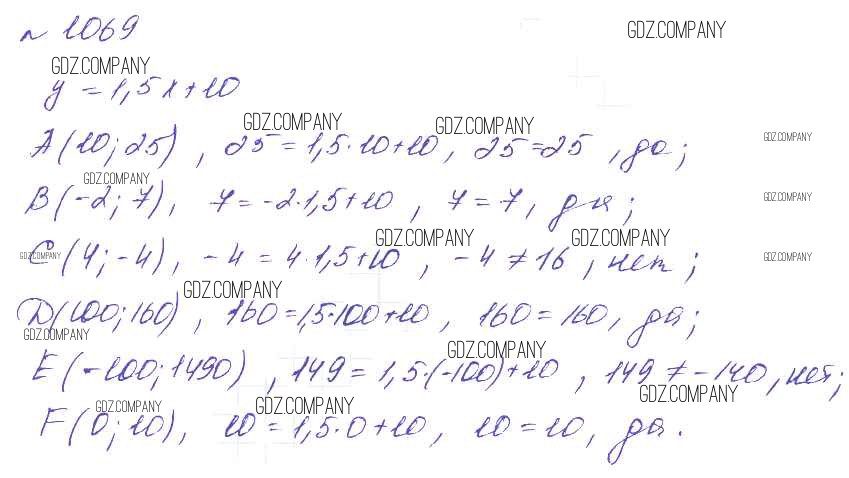 № 1069
GDZ.COMPANY
GDZ.COMPANY
y = 1,5x+10
GDZ.COMPANY GDZ.COMPANY
A(10; 25), 25 = 1,5·10+10, 25=25, да;
GDZ.COMPANY
GDZ.COMPANY
B(-2; 7), 7 = -2·1,5+10, 7 = 7, да;
GDZ.COMPANY
GDZ.COMPANY GDZ.COMPANY
GDZ.COMPANY
C(4; -4), -4 = 4·1,5+10, -4 ≠ 16, нет;
GDZ.COMPANY
GDZ.COMPANY
D(100; 160), 160 = 1,5·100+10, 160 = 160, да;
GDZ.COMPANY
GDZ.COMPANY
E(-100; 1490), 149 = 1,5·(-100)+10, 149 ≠ -140, нет;
GDZ.COMPANY
GDZ.COMPANY GDZ.COMPANY
F(0; 10), 10 = 1,5·0+10, 10 = 10, да.